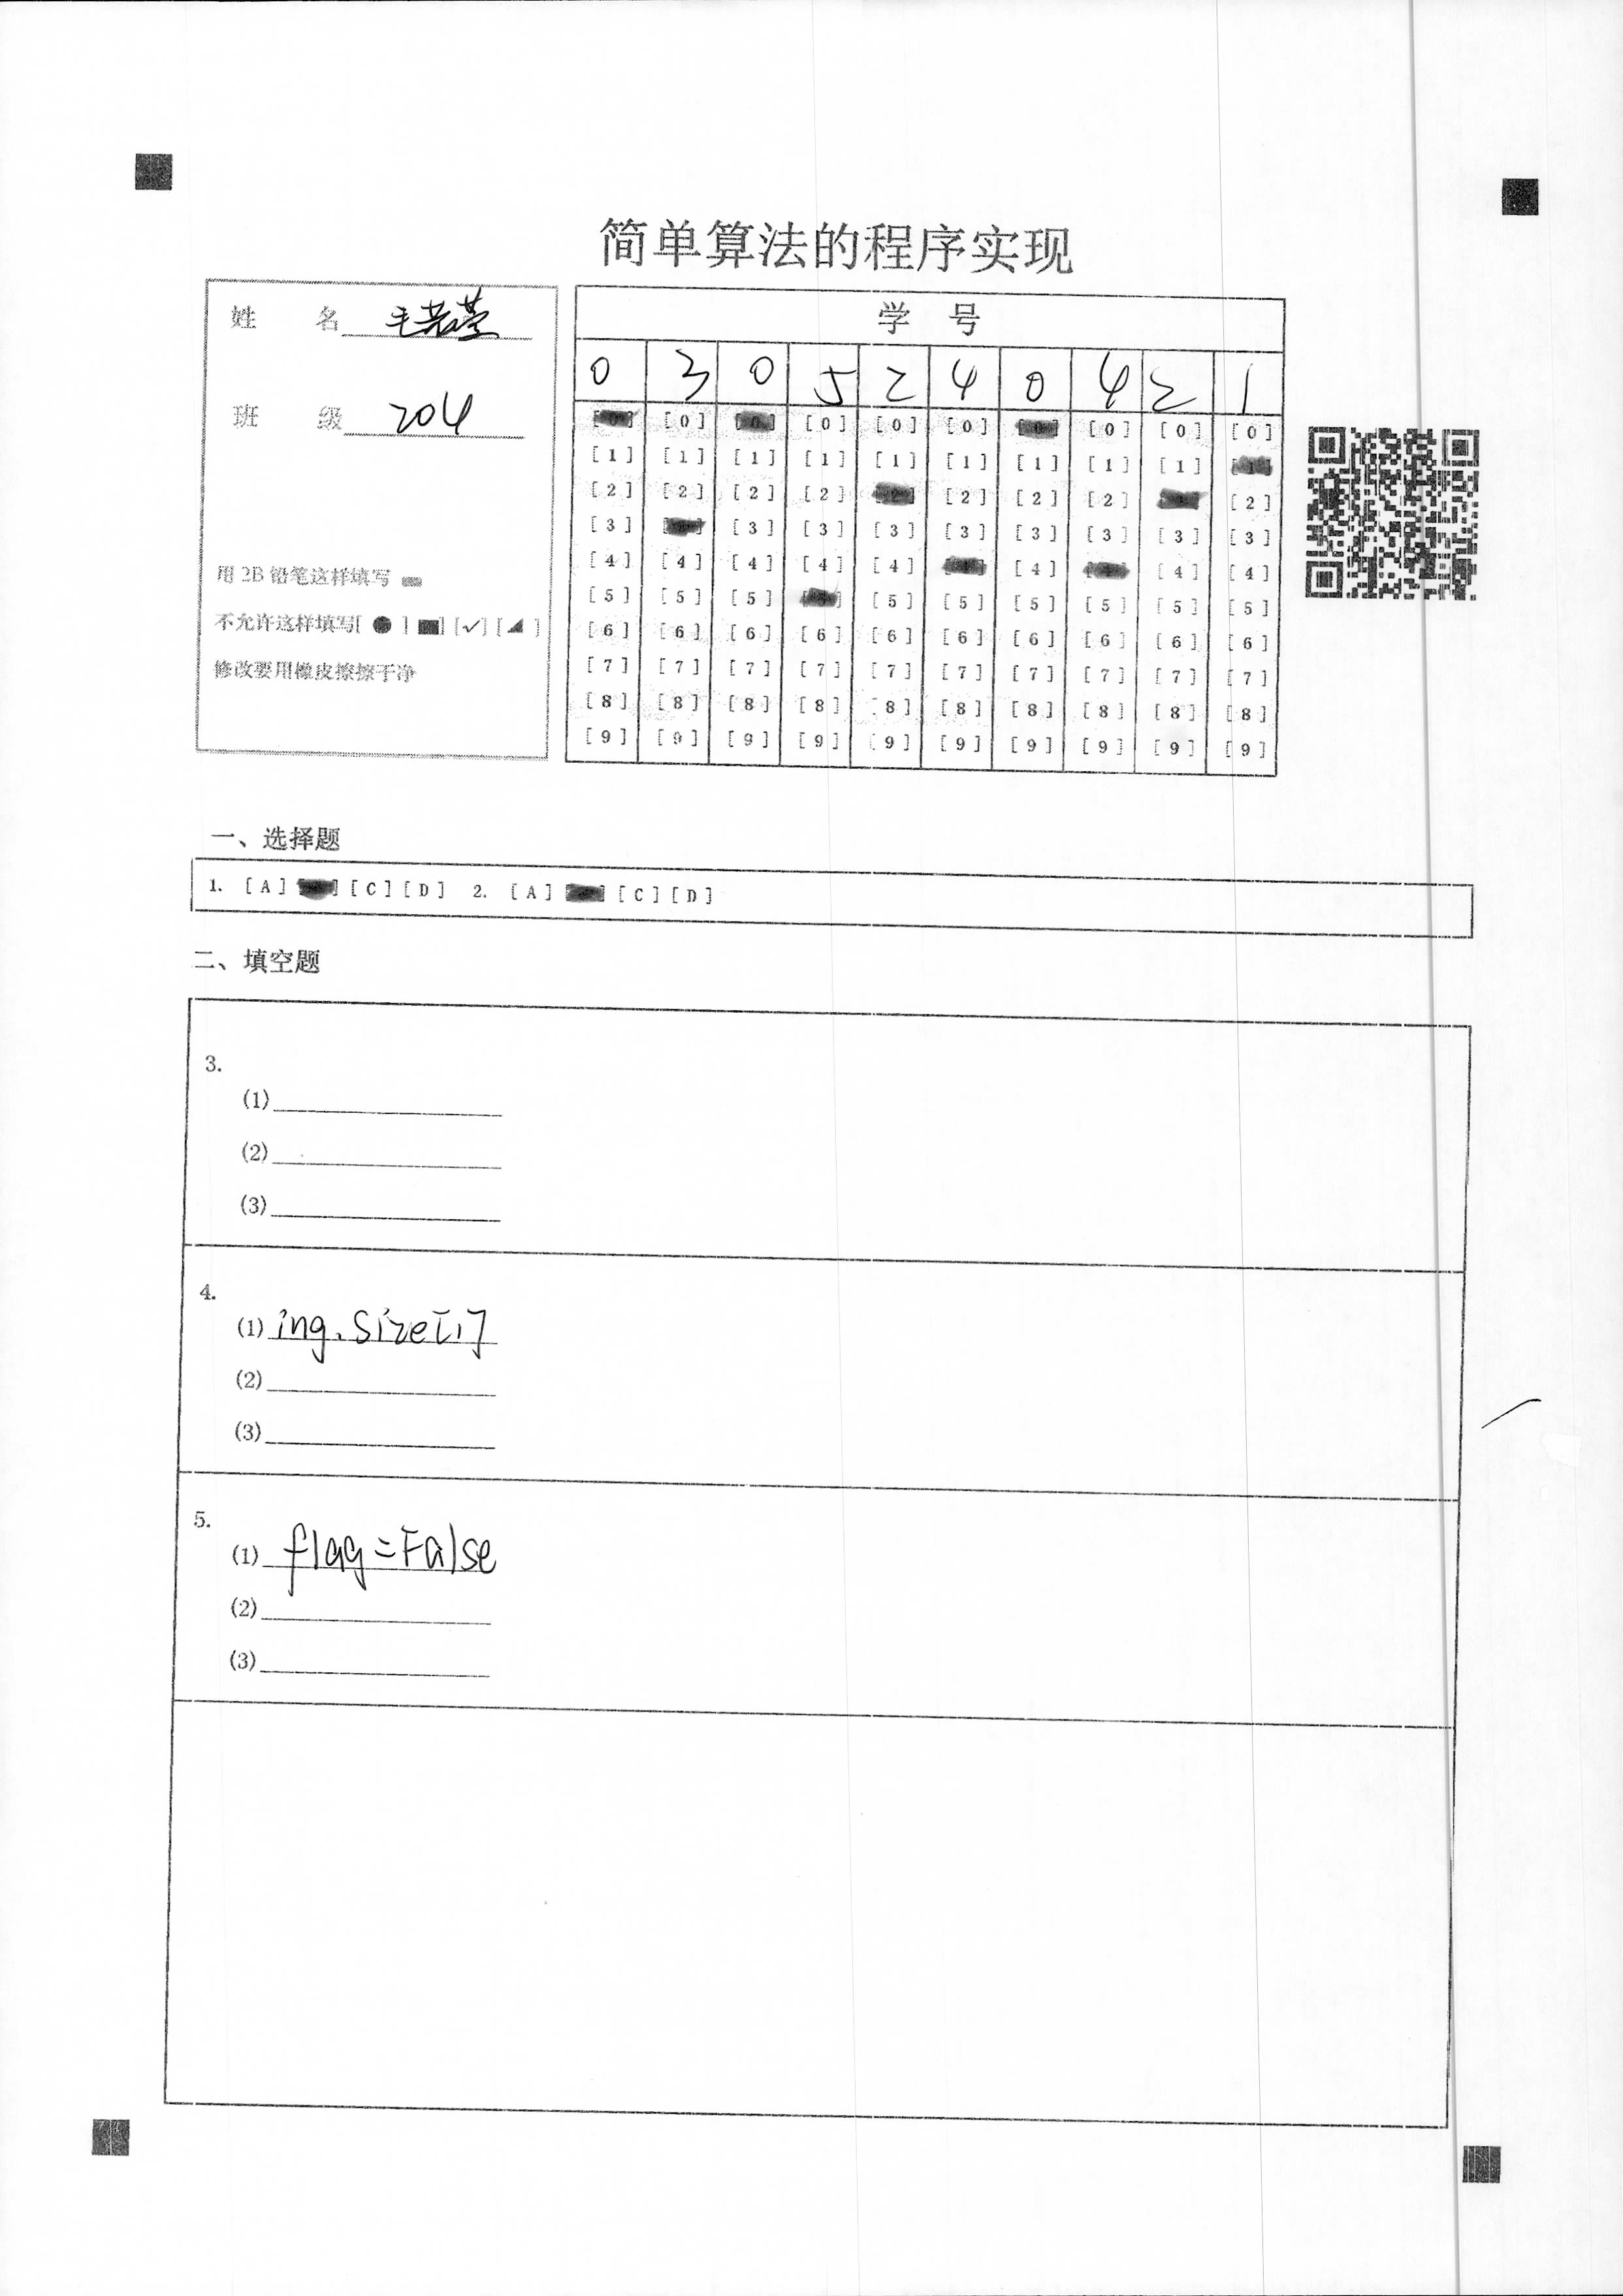 简单算法的程序实现
姓 名 毛若莹
班 级 204
用 2B 铅笔这样填写
不允许这样填写[ ● ] [■] [✓] [◢ ]
修改要用橡皮擦擦干净
学 号
0 3 0 5 2 4 0 4 2 1
[0] [0] [0] [0] [0] [0] [0] [0] [0] [0]
[1] [1] [1] [1] [1] [1] [1] [1] [1] [1]
[2] [2] [2] [2] [2] [2] [2] [2] [2] [2]
[3] [3] [3] [3] [3] [3] [3] [3] [3] [3]
[4] [4] [4] [4] [4] [4] [4] [4] [4] [4]
[5] [5] [5] [5] [5] [5] [5] [5] [5] [5]
[6] [6] [6] [6] [6] [6] [6] [6] [6] [6]
[7] [7] [7] [7] [7] [7] [7] [7] [7] [7]
[8] [8] [8] [8] [8] [8] [8] [8] [8] [8]
[9] [9] [9] [9] [9] [9] [9] [9] [9] [9]
一、选择题
1. [A] [B] [C] [D] 2. [A] [B] [C] [D]
二、填空题
3.
(1)
(2)
(3)
4.
(1) ing.size[1]
(2)
(3)
5.
(1) flag=False
(2)
(3)